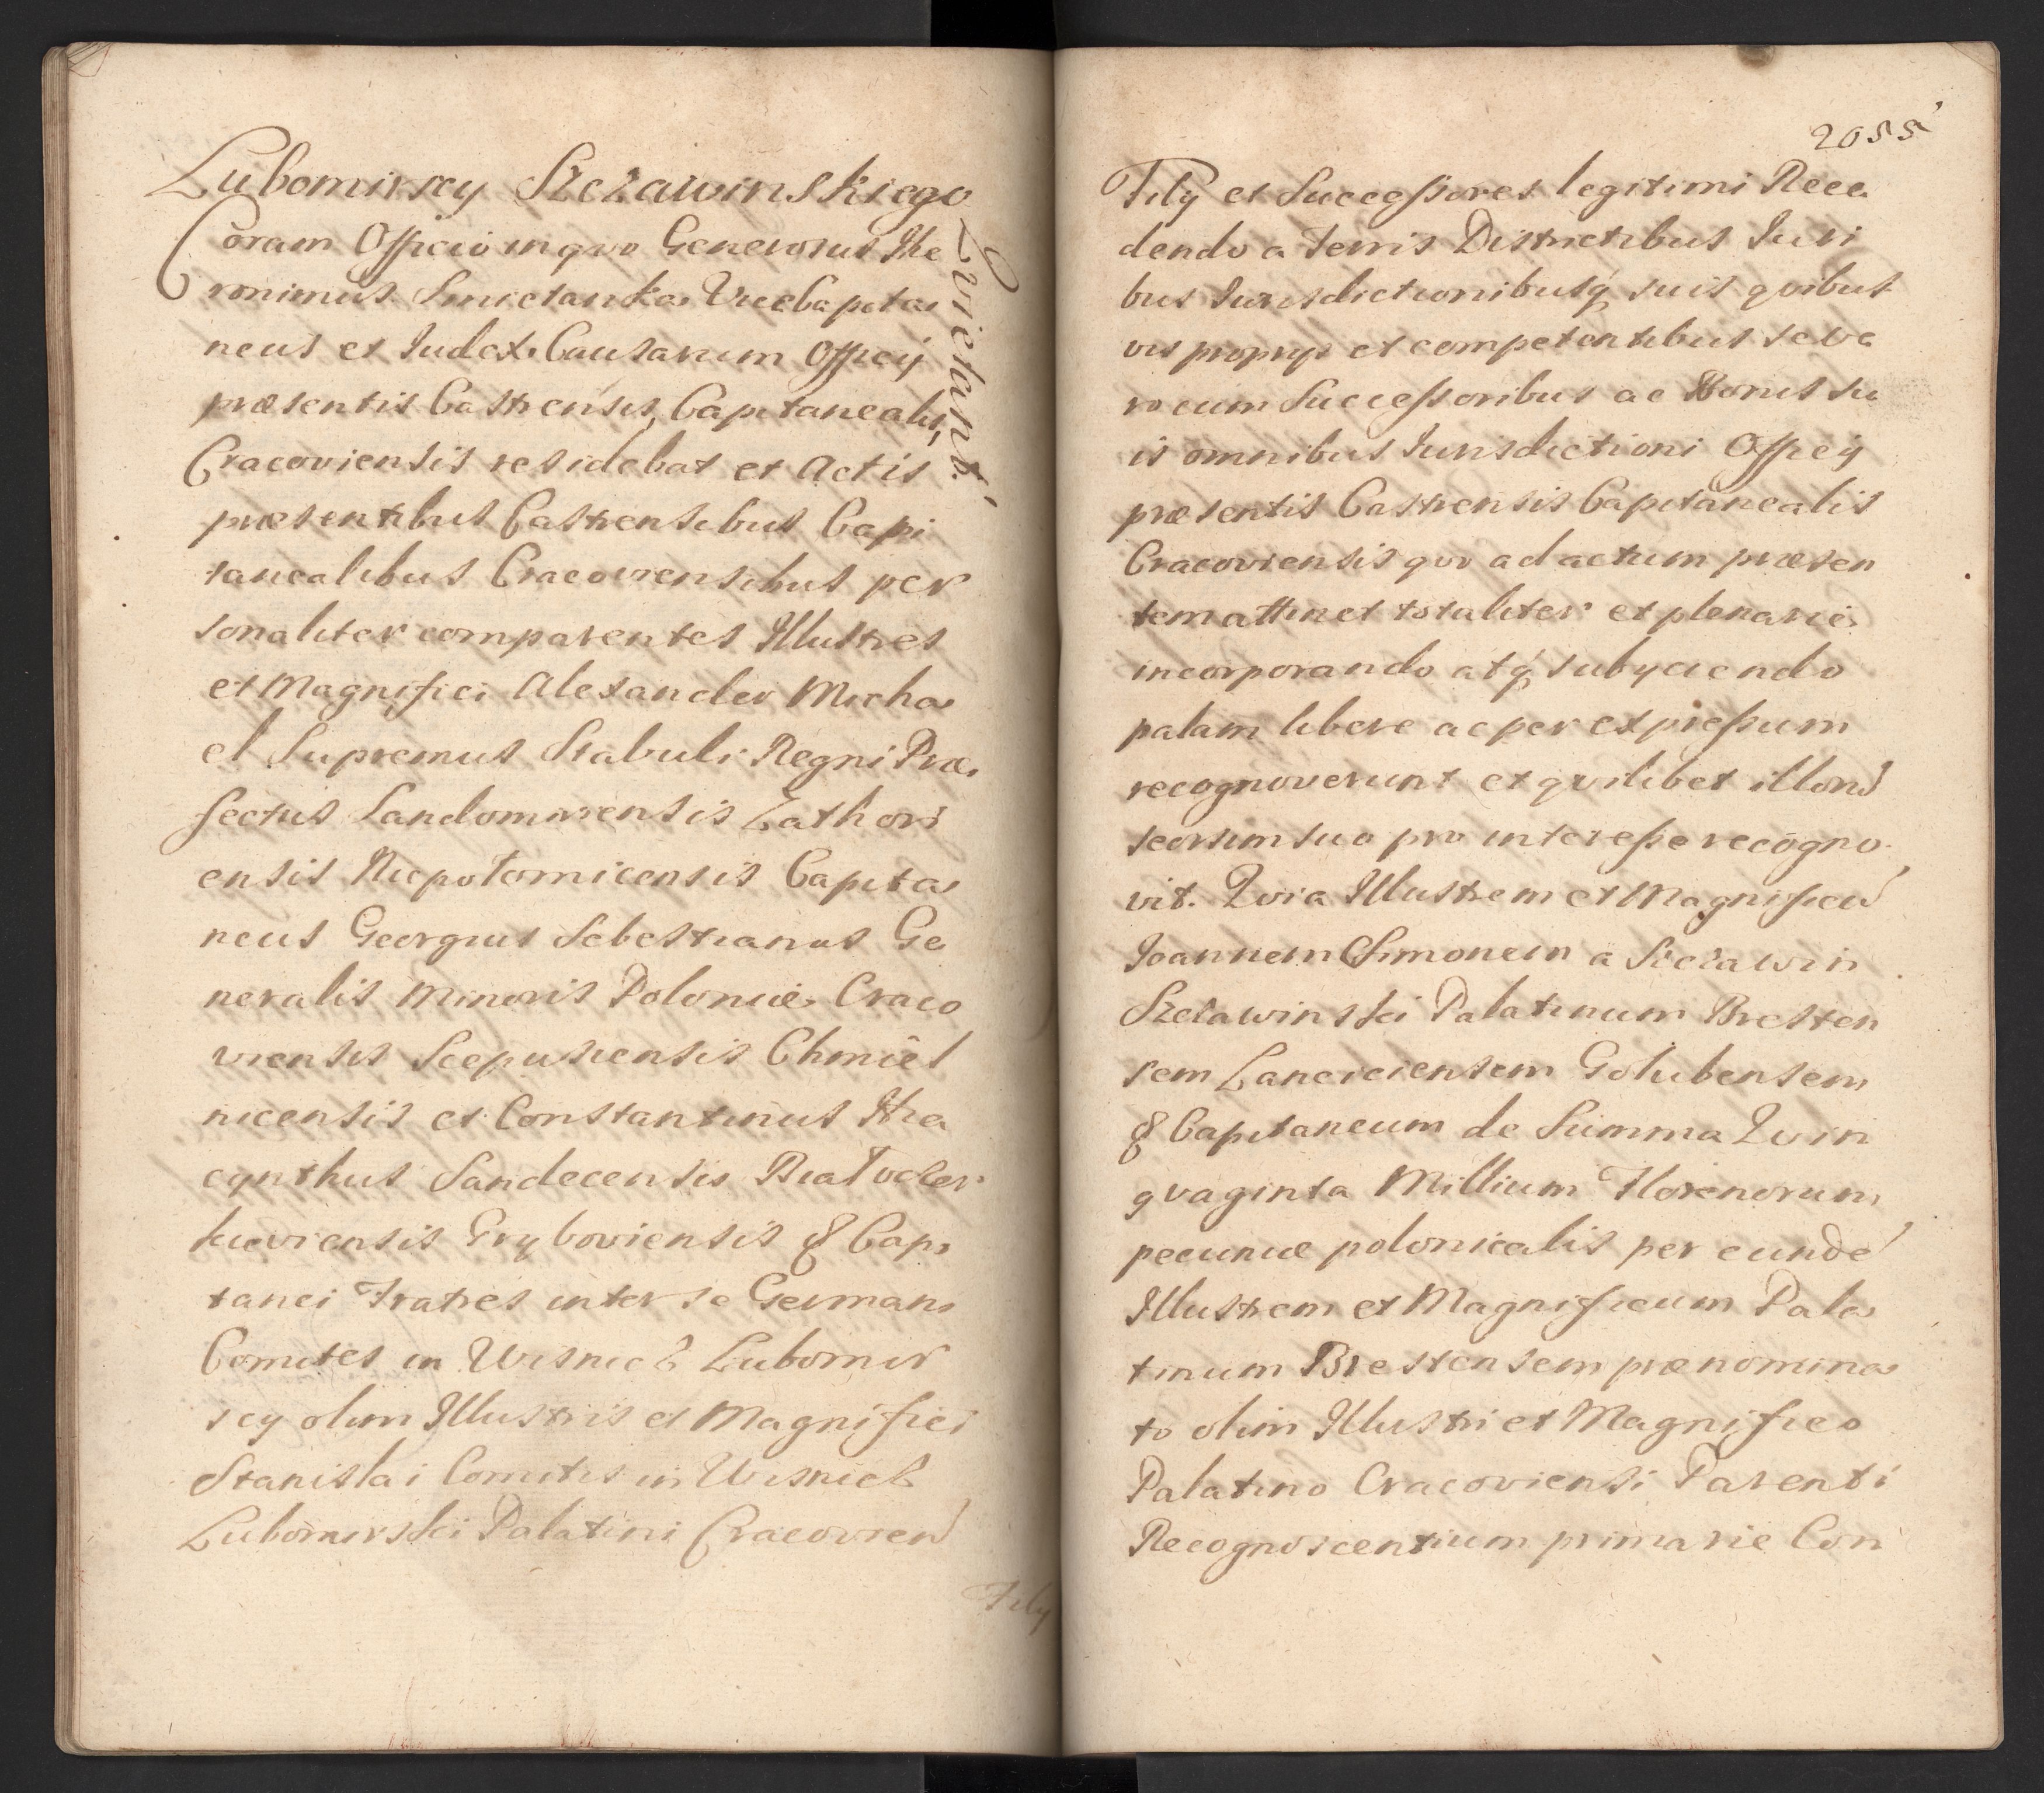 Lubomirscy Szczawinskiego
Qvietant.
Coram Officio in qvo Generosus Ihe
ronimus Smietanka ViceCapita
neus et Iudex Causarum Officij
præsentis Castrensis Capitanealis
Cracoviensis residebat et Actis
præsentibus Castrensibus Capi
tanealibus Cracoviensibus per
sonaliter comparentes Illustres
et Magnifici Alexander Micha
el Supremus Stabuli Regni Præ
fectus Sandomiriensis Zathori
ensis Niepołomicensis Capita
neus Georgius Sebestianus Ge
neralis Minoris Poloniæ Craco
viensis Scepusiensis Chmiel
nicensis et Constantinus Hia
cynthus Sandecensis Białocer
kieviensis Gryboviensis & Capi
tanei Fratres inter se Germani
Comites in Wisnicz Lubomir
scy olim Illustris et Magnifici
Stanislai Comitis in Wisnicz
Lubomirski Palatini Cracovien
Filij
2055
Filij et Successores legitimi Rece
dendo a Terris Districtibus Iuri
bus Iurisdictionibusq suis qvibus
vis proprijs et competentibus seve
ro cum Successoribus ac Bonis su
is omnibus Iurisdictioni Officij
præsentis Castrensis Capitanealis
Cracoviensis qvo ad actum præsen
tem attinet totaliter et plenarie
incorporando atq subijciendo
palam libere ac per expressum
recognoverunt et qvilibet illorū
seorsim suo pro interesse recogno
vit. Qvia Illustrem et Magnificū
Joannem Simonem a Szczawin
Szczawinski Palatinum Bresten
sem Lanciciensem Golubensem
& Capitaneum de Summa Qvin
qvaginta Millium Florenorum
pecuniæ polonicalis per eundē
Illustrem et Magnificum Pala
tinum Brestensem prænomina
to olim Illustri et Magnifico
Palatino Cracoviensi Parenti
Recognoscentium primarie Con